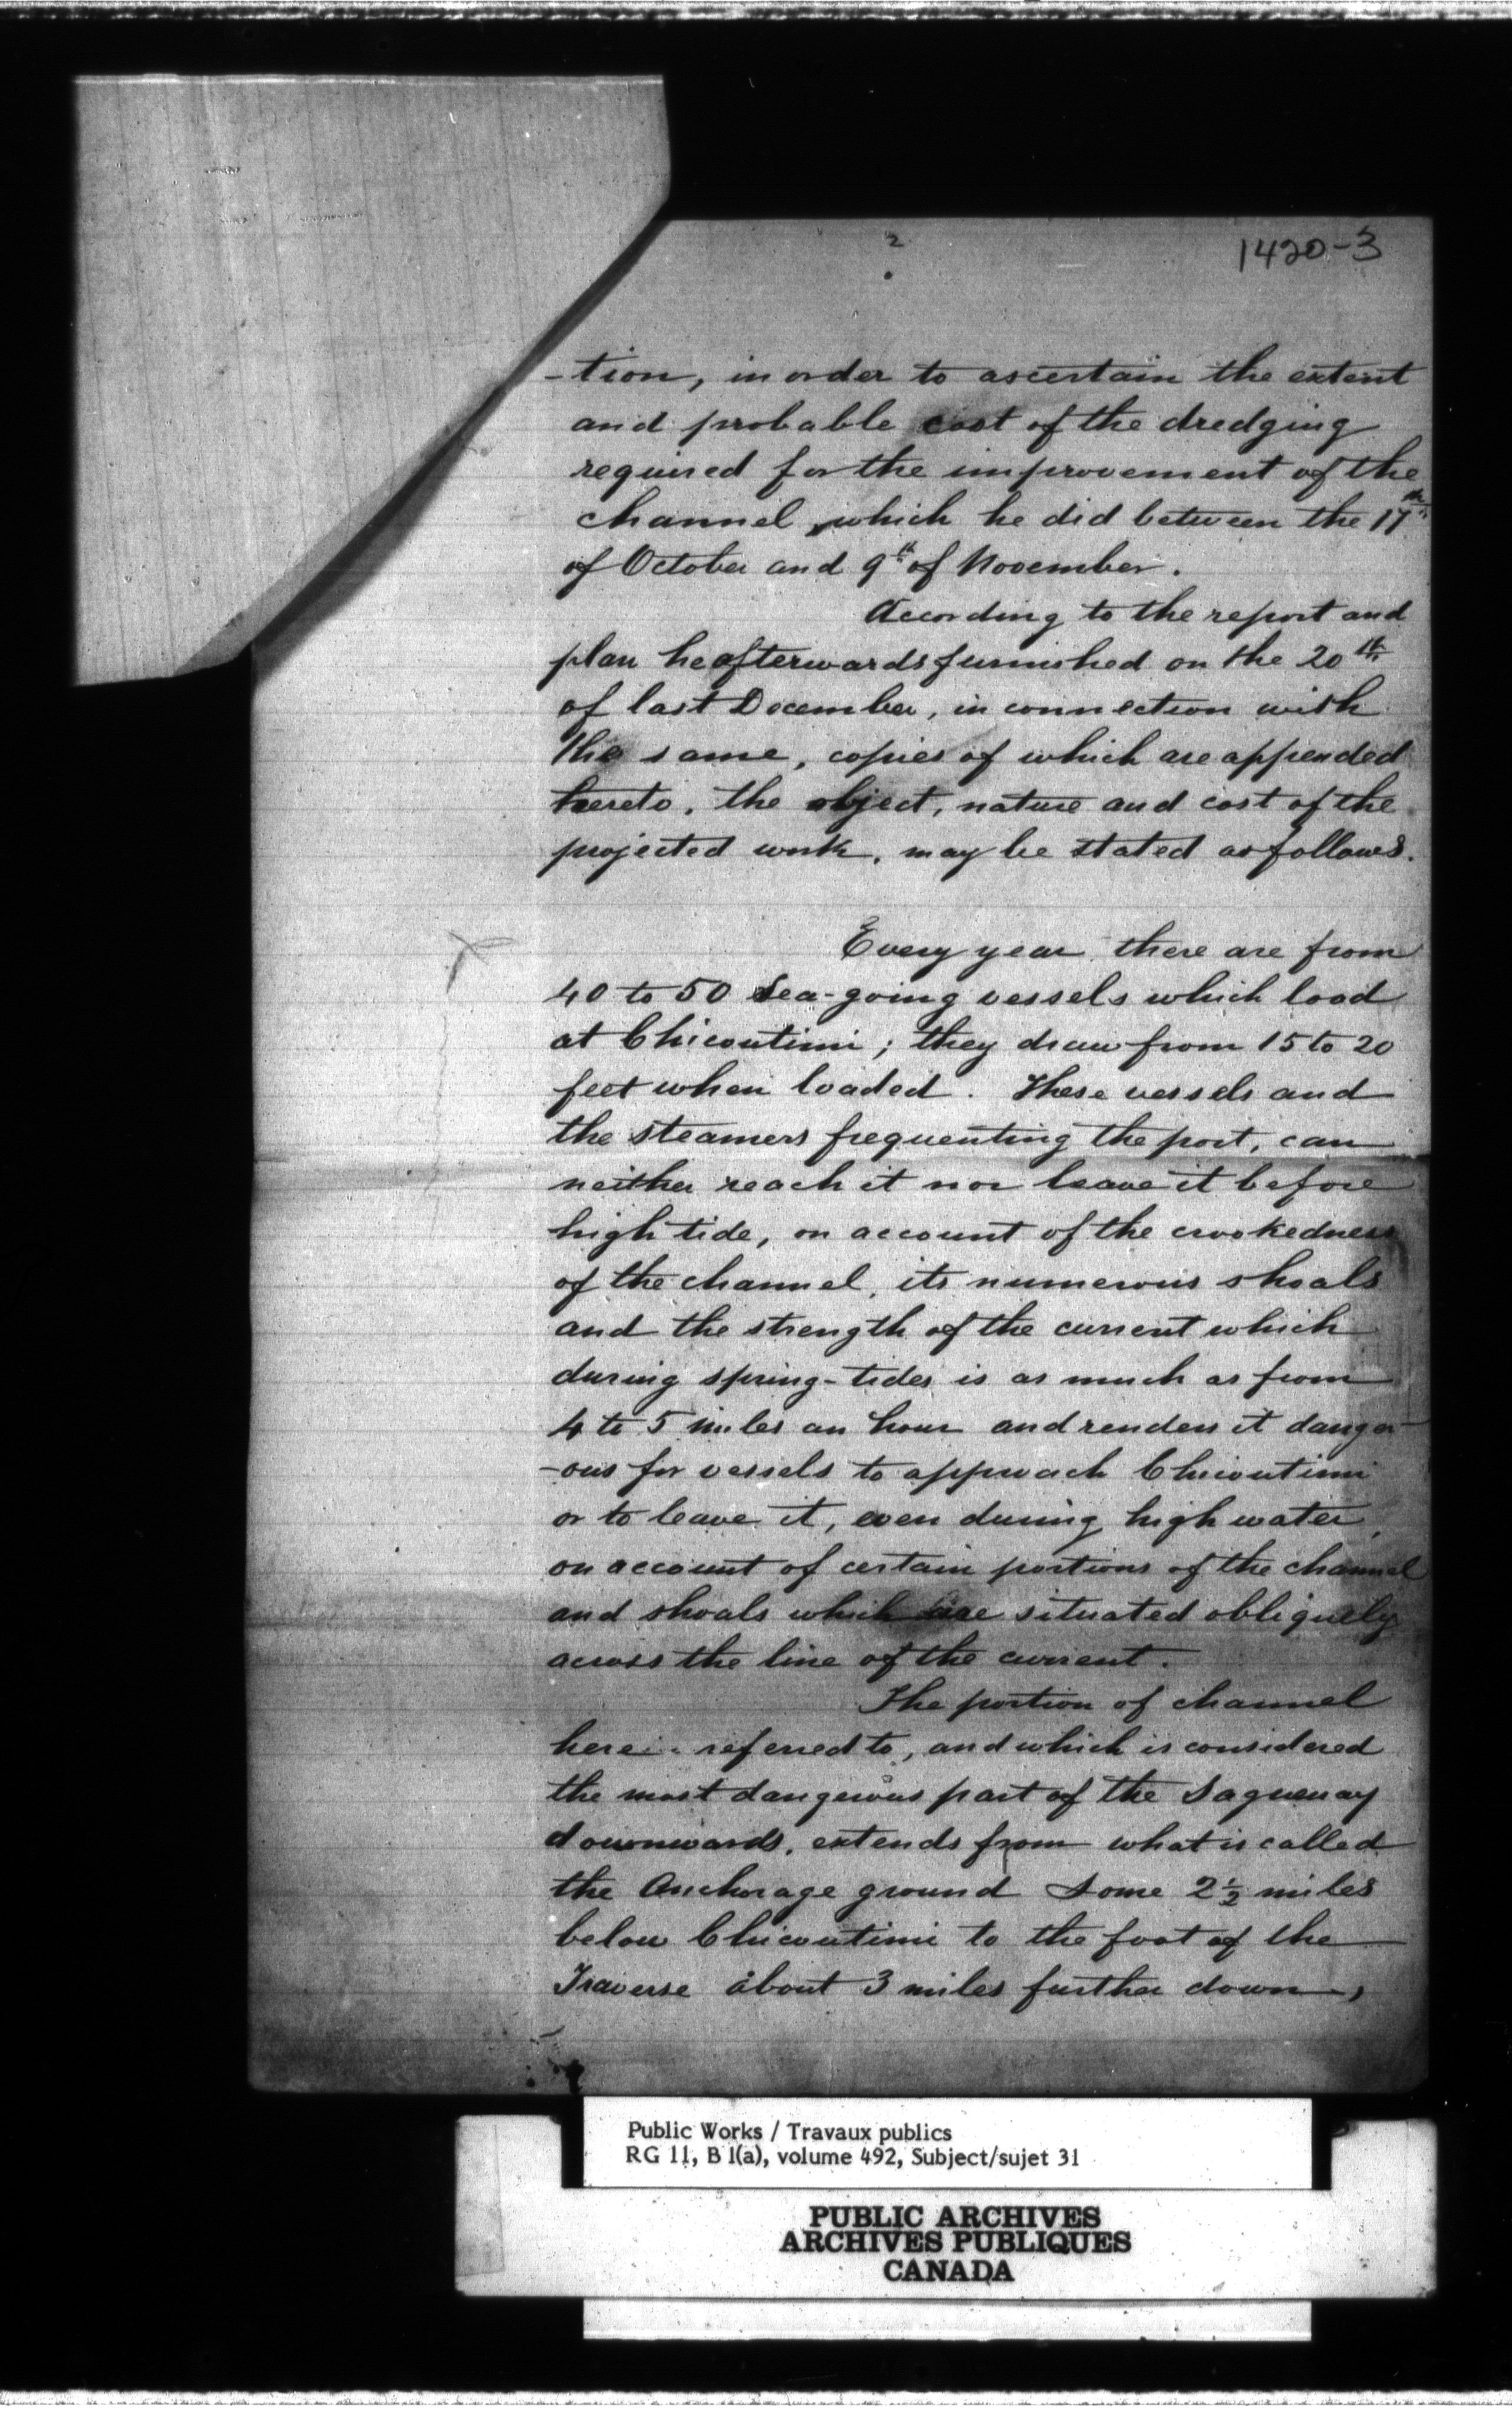 2
1420-3
-tion, in order to ascertain the extent
and probable cost of the dredging
required for the improvement of the
channel, which he did between the 17th
of October and 9th of November.
According to the report and
plan he afterwards furnished on the 20th
of last December, in connection with
the same, copies of which are appended
hereto, the object, nature and cost of the
projected work, may be stated as follows.
Every year there are from
40 to 50 Sea-going vessels which load
at Chicoutimi; they draw from 15 to 20
feet when loaded. These vessels and
the steamers frequenting the port, can
neither reach it nor leave it before
high tide, on account of the crookedness
of the channel, its numerous shoals
and the strength of the current which
during spring-tides is as much as from
4 to 5 miles an hour and renders it danger-
-ous for vessels to approach Chicoutimi
or to leave it, even during high water,
on account of certain portions of the channel
and shoals which are situated obliquely
across the line of the current.
The portion of channel
herein referred to, and which is considered
the most dangerous part of the Saguenay
downwards, extends from what is called
the Anchorage ground Some 2½ miles
below Chicoutimi to the foot of the
Traverse about 3 miles further down,
Public Works / Travaux publics
RG 11, B 1(a), volume 492, Subject/sujet 31
PUBLIC ARCHIVES
ARCHIVES PUBLIQUES
CANADA